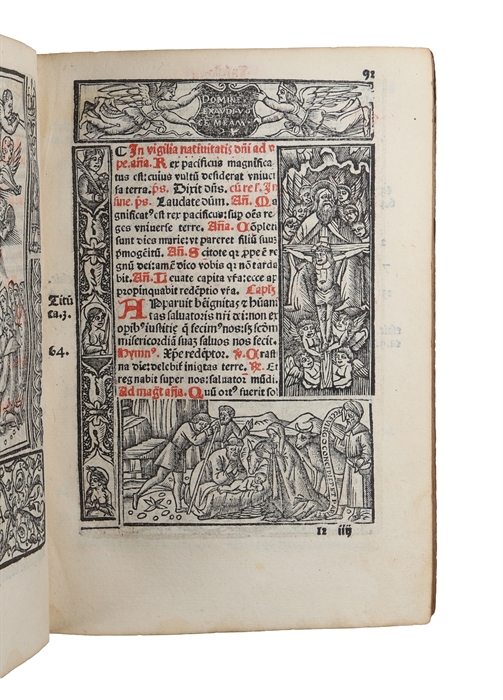 91
DOMINE
EXAVDI VO
CEM MEAM
In vigilia natiuitatis dñi ad v
pe. aña. Rex pacificus magnificat
tus est: cuius vultũ desiderat vniuer
sa terra. ps. Dixit dñs. cũ rel. In
fine. ps. Laudate dũm. Añ. Ma
gnificatꝰ est rex pacificus: sup oẽs re
ges vniuerse terre. Aña. Cõpleti
sunt dies marie: vt pareret filiũ suuz
pmogẽitũ. Añ. Scitote qꝛ ꝓpe ẽ re
gnũ dei: amẽ dico vobis qꝛ nõ tarda
bit. Añ. Leuate capita vr̃a: ecce ap
propinquabit redẽptio vr̃a. Caplz
Apparuit bẽignitas ⁊ hũani
tas saluatoris nr̃i dei: non ex
opib iusticie q̃ fecimꝰ nos: sz scdm
misericordiã suaz saluos nos fecit.
Hymnꝰ. Xp̃e redẽptor. ℣. Cra
stina die: delebit iniqtas terre. ℟. Et
regnabit super nos: saluator mũdi.
Ad magt̃ aña. Quũ ortꝰ fuerit sol
Titũ
ca. 3.
64.
iiij